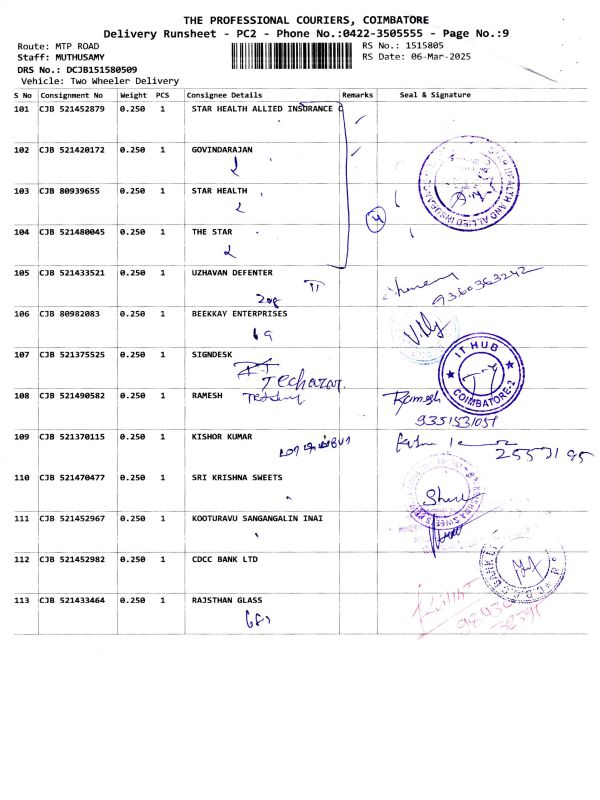 THE PROFESSIONAL COURIERS, COIMBATORE
Delivery Runsheet - PC2 - Phone No.:0422-3505555 - Page No.:9
Route: MTP ROAD
Staff: MUTHUSAMY
DRS No.: DCJB151580509
Vehicle: Two Wheeler Delivery
RS No.: 1515805
RS Date: 06-Mar-2025
S No Consignment No Weight PCS Consignee Details Remarks Seal & Signature
101 CJB 521452879 0.250 1 STAR HEALTH ALLIED INSURANCE C
102 CJB 521420172 0.250 1 GOVINDARAJAN
103 CJB 80939655 0.250 1 STAR HEALTH
4
104 CJB 521480045 0.250 1 THE STAR
105 CJB 521433521 0.250 1 UZHAVAN DEFENTER
9360363242
106 CJB 80982083 0.250 1 BEEKKAY ENTERPRISES
107 CJB 521375525 0.250 1 SIGNDESK
IT HUB
COIMBATORE-2
108 CJB 521490582 0.250 1 RAMESH
Ramesh
9351531051
109 CJB 521370115 0.250 1 KISHOR KUMAR
110 CJB 521470477 0.250 1 SRI KRISHNA SWEETS
111 CJB 521452967 0.250 1 KOOTURAVU SANGANGALIN INAI
112 CJB 521452982 0.250 1 CDCC BANK LTD
113 CJB 521433464 0.250 1 RAJSTHAN GLASS